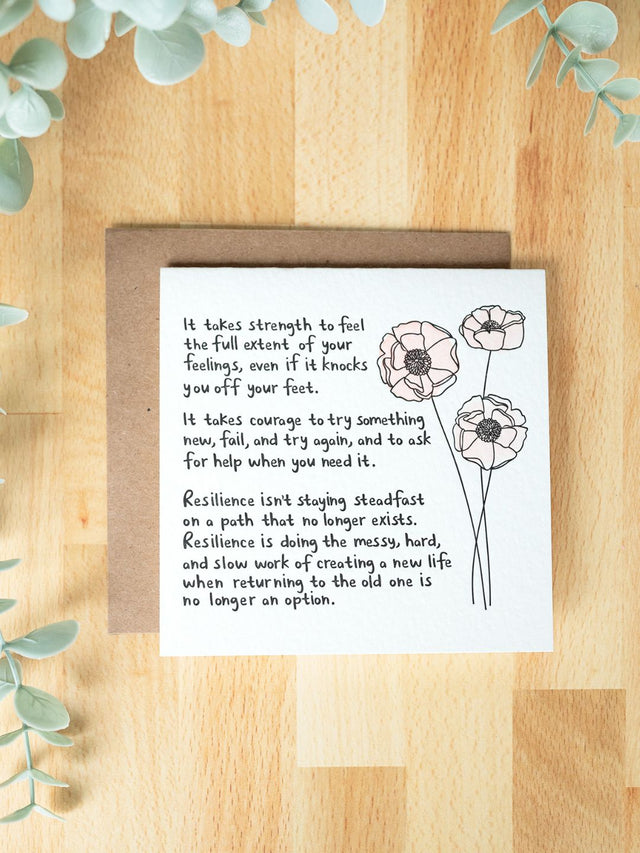 It takes strength to feel
the full extent of your
feelings, even if it knocks
you off your feet.
It takes courage to try something
new, fail, and try again, and to ask
for help when you need it.
Resilience isn't staying steadfast
on a path that no longer exists.
Resilience is doing the messy, hard,
and slow work of creating a new life
when returning to the old one is
no longer an option.